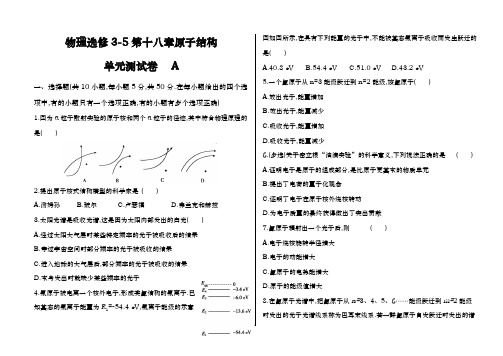 物理选修3-5第十八章原子结构
单元测试卷 A
一、选择题(共10小题,每小题5分,共50分.在每小题给出的四个选
项中,有的小题只有一个选项正确,有的小题有多个选项正确)
1.图为α粒子散射实验的原子核和两个α粒子的径迹,其中符合物理原理的
是( )
A B C D
2.提出原子核式结构模型的科学家是( )
A.汤姆孙 B.玻尔 C.卢瑟福 D.弗兰克和赫兹
3.太阳光谱是吸收光谱,这是因为太阳内部发出的白光( )
A.经过太阳大气层时某些特定频率的光子被吸收后的结果
B.穿过宇宙空间时部分频率的光子被吸收的结果
C.进入地球的大气层后,部分频率的光子被吸收的结果
D.本身发出时就缺少某些频率的光子
4.氦原子被电离一个核外电子,形成类氢结构的氦离子.已
知基态的氦离子能量为E₁=-54.4 eV,氦离子能级的示意
0
-3.4 eV
-6.0 eV
-13.6 eV
-54.4 eV
图如图所示.在具有下列能量的光子中,不能被基态氦离子吸收而发生跃迁的
是( )
A.40.8 eV B.54.4 eV C.51.0 eV D.43.2 eV
5.一个氢原子从n=3能级跃迁到n=2能级,该氢原子( )
A.放出光子,能量增加
B.放出光子,能量减少
C.吸收光子,能量增加
D.吸收光子,能量减少
6.(多选)关于密立根“油滴实验”的科学意义,下列说法正确的是 ( )
A.证明电子是原子的组成部分,是比原子更基本的物质单元
B.提出了电荷的量子化观念
C.证明了电子在原子核外绕核转动
D.为电子质量的最终获得做出了突出贡献
7.氢原子辐射出一个光子后,则 ( )
A.电子绕核旋转半径增大
B.电子的动能增大
C.氢原子的电势能增大
D.原子的能级值增大
8.在氢原子光谱中,把氢原子从n=3、4、5、6……能级跃迁到n=2能级
时发出的光子光谱线系称为巴耳末线系.若一群氢原子自发跃迁时发出的谱